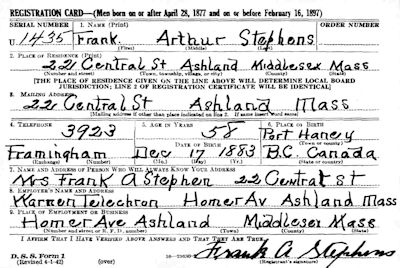 REGISTRATION CARD—(Men born on or after April 28, 1877 and on or before February 16, 1897)
SERIAL NUMBER 1. NAME (Print) ORDER NUMBER
U 1435 Frank. Arthur Stephens
(First) (Middle) (Last)
2. PLACE OF RESIDENCE (Print)
22 Central St Ashland Middlesex Mass
(Number and street) (Town, township, village, or city) (County) (State)
[THE PLACE OF RESIDENCE GIVEN ON THE LINE ABOVE WILL DETERMINE LOCAL BOARD
JURISDICTION; LINE 2 OF REGISTRATION CERTIFICATE WILL BE IDENTICAL]
3. MAILING ADDRESS
22 Central St Ashland Mass
[Mailing address if other than place indicated on line 2. If same insert word same]
4. TELEPHONE 5. AGE IN YEARS 6. PLACE OF BIRTH
3923 58 Port Haney
DATE OF BIRTH (Town or county)
Framingham Dec 17 1883 B.C. Canada
(Exchange) (Number) (Mo.) (Day) (Yr.) (State or country)
7. NAME AND ADDRESS OF PERSON WHO WILL ALWAYS KNOW YOUR ADDRESS
Mrs Frank A Stephen 22 Central St
8. EMPLOYER'S NAME AND ADDRESS
Warren Telechron Homer Av Ashland Mass
9. PLACE OF EMPLOYMENT OR BUSINESS
Homer Ave Ashland Middlesex Mass
(Number and street or R. F. D. number) (Town) (County) (State)
I AFFIRM THAT I HAVE VERIFIED ABOVE ANSWERS AND THAT THEY ARE TRUE.
D. S. S. Form 1
(Revised 4-1-42) (over) Frank A Stephens
(Registrant's signature)